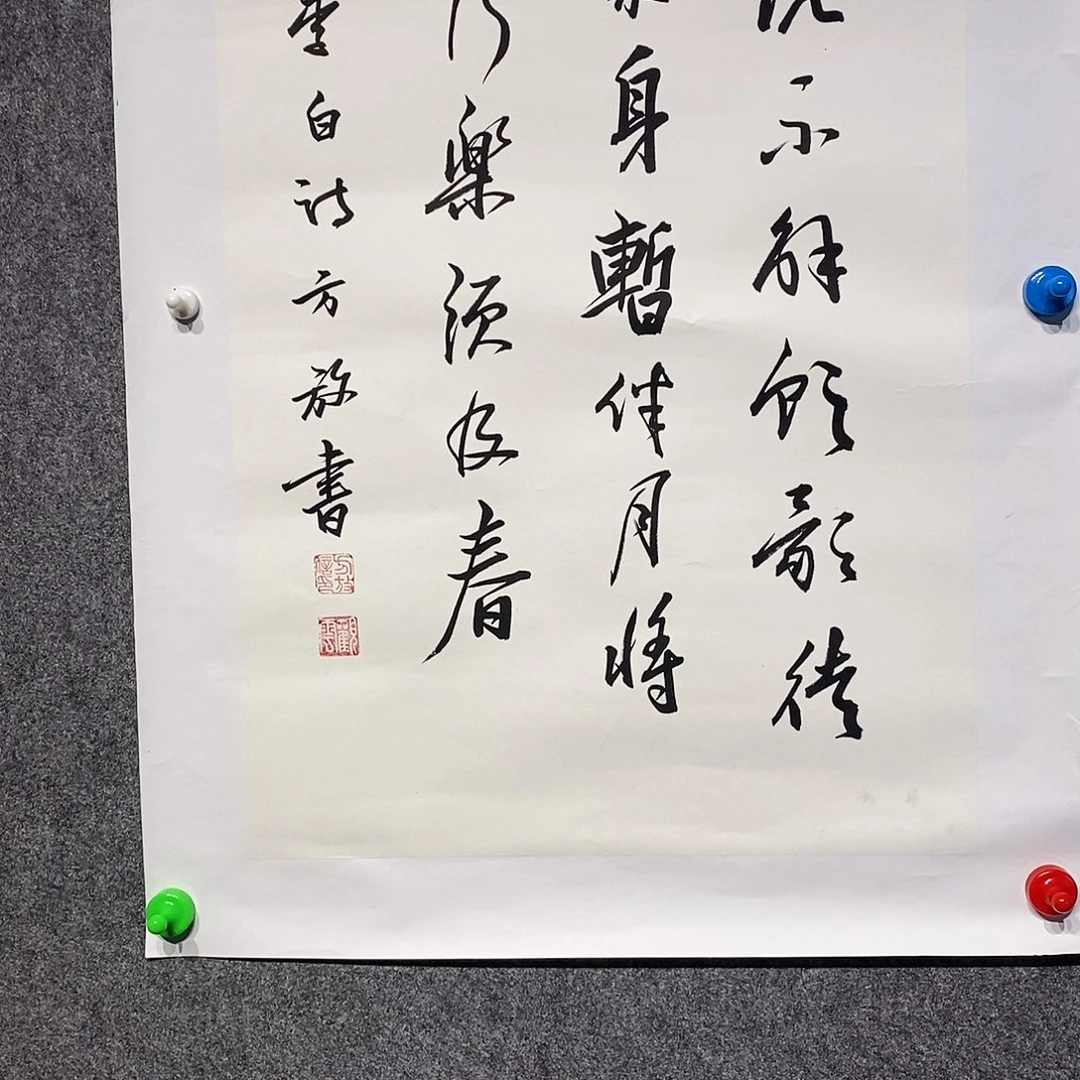 不解飲影徒
身暫伴月將
行樂須及春
李白詩方放書